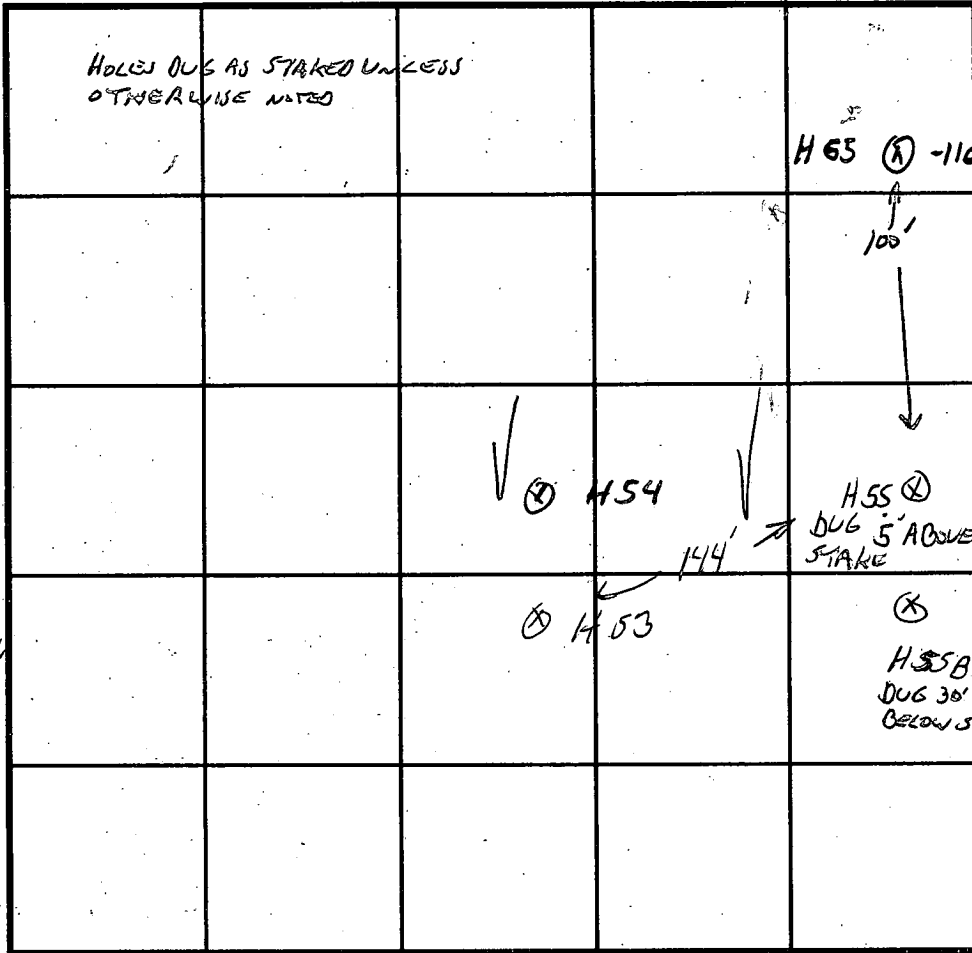 HOLES DUG AS STAKED UNLESS
OTHERWISE NOTED
H 65 -116
100'
H 54
H 55
DUG 5' ABOVE
STAKE
144'
H 53
H 55B
DUG 30'
BELOW S